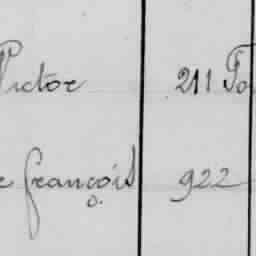 Victor 211 To
e françois 922